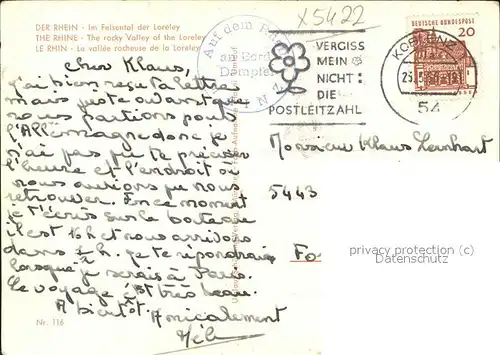 DER RHEIN - Im Felsental der Loreley
THE RHINE - The rocky Valley of the Loreley
LE RHIN - La vallée rocheuse de la Loreley
Cher Klaus,
j'ai bien reçu ta lettre
mais juste avant que
nous partions pour
l'Allemagne donc je
n'ai pas pu te préciser
l'heure et l'endroit où
nous aurions pu nous
retrouver. En ce moment
je t'écris sur le bateau
il est 16h et nous arrivons
dans 2 h. je te répondrai
lorsque je serais à Paris.
Le voyage est très beau.
A bientôt. Amicalement
Nr. 116
X5422
Auf dem
an Bord
Dampfer
VERGISS
MEIN
NICHT:
DIE
POSTLEITZAHL
DEUTSCHE BUNDESPOST
20
KOBLENZ
54
Monsieur Klaus Leonhart
5443
Fo
privacy protection
Datenschutz